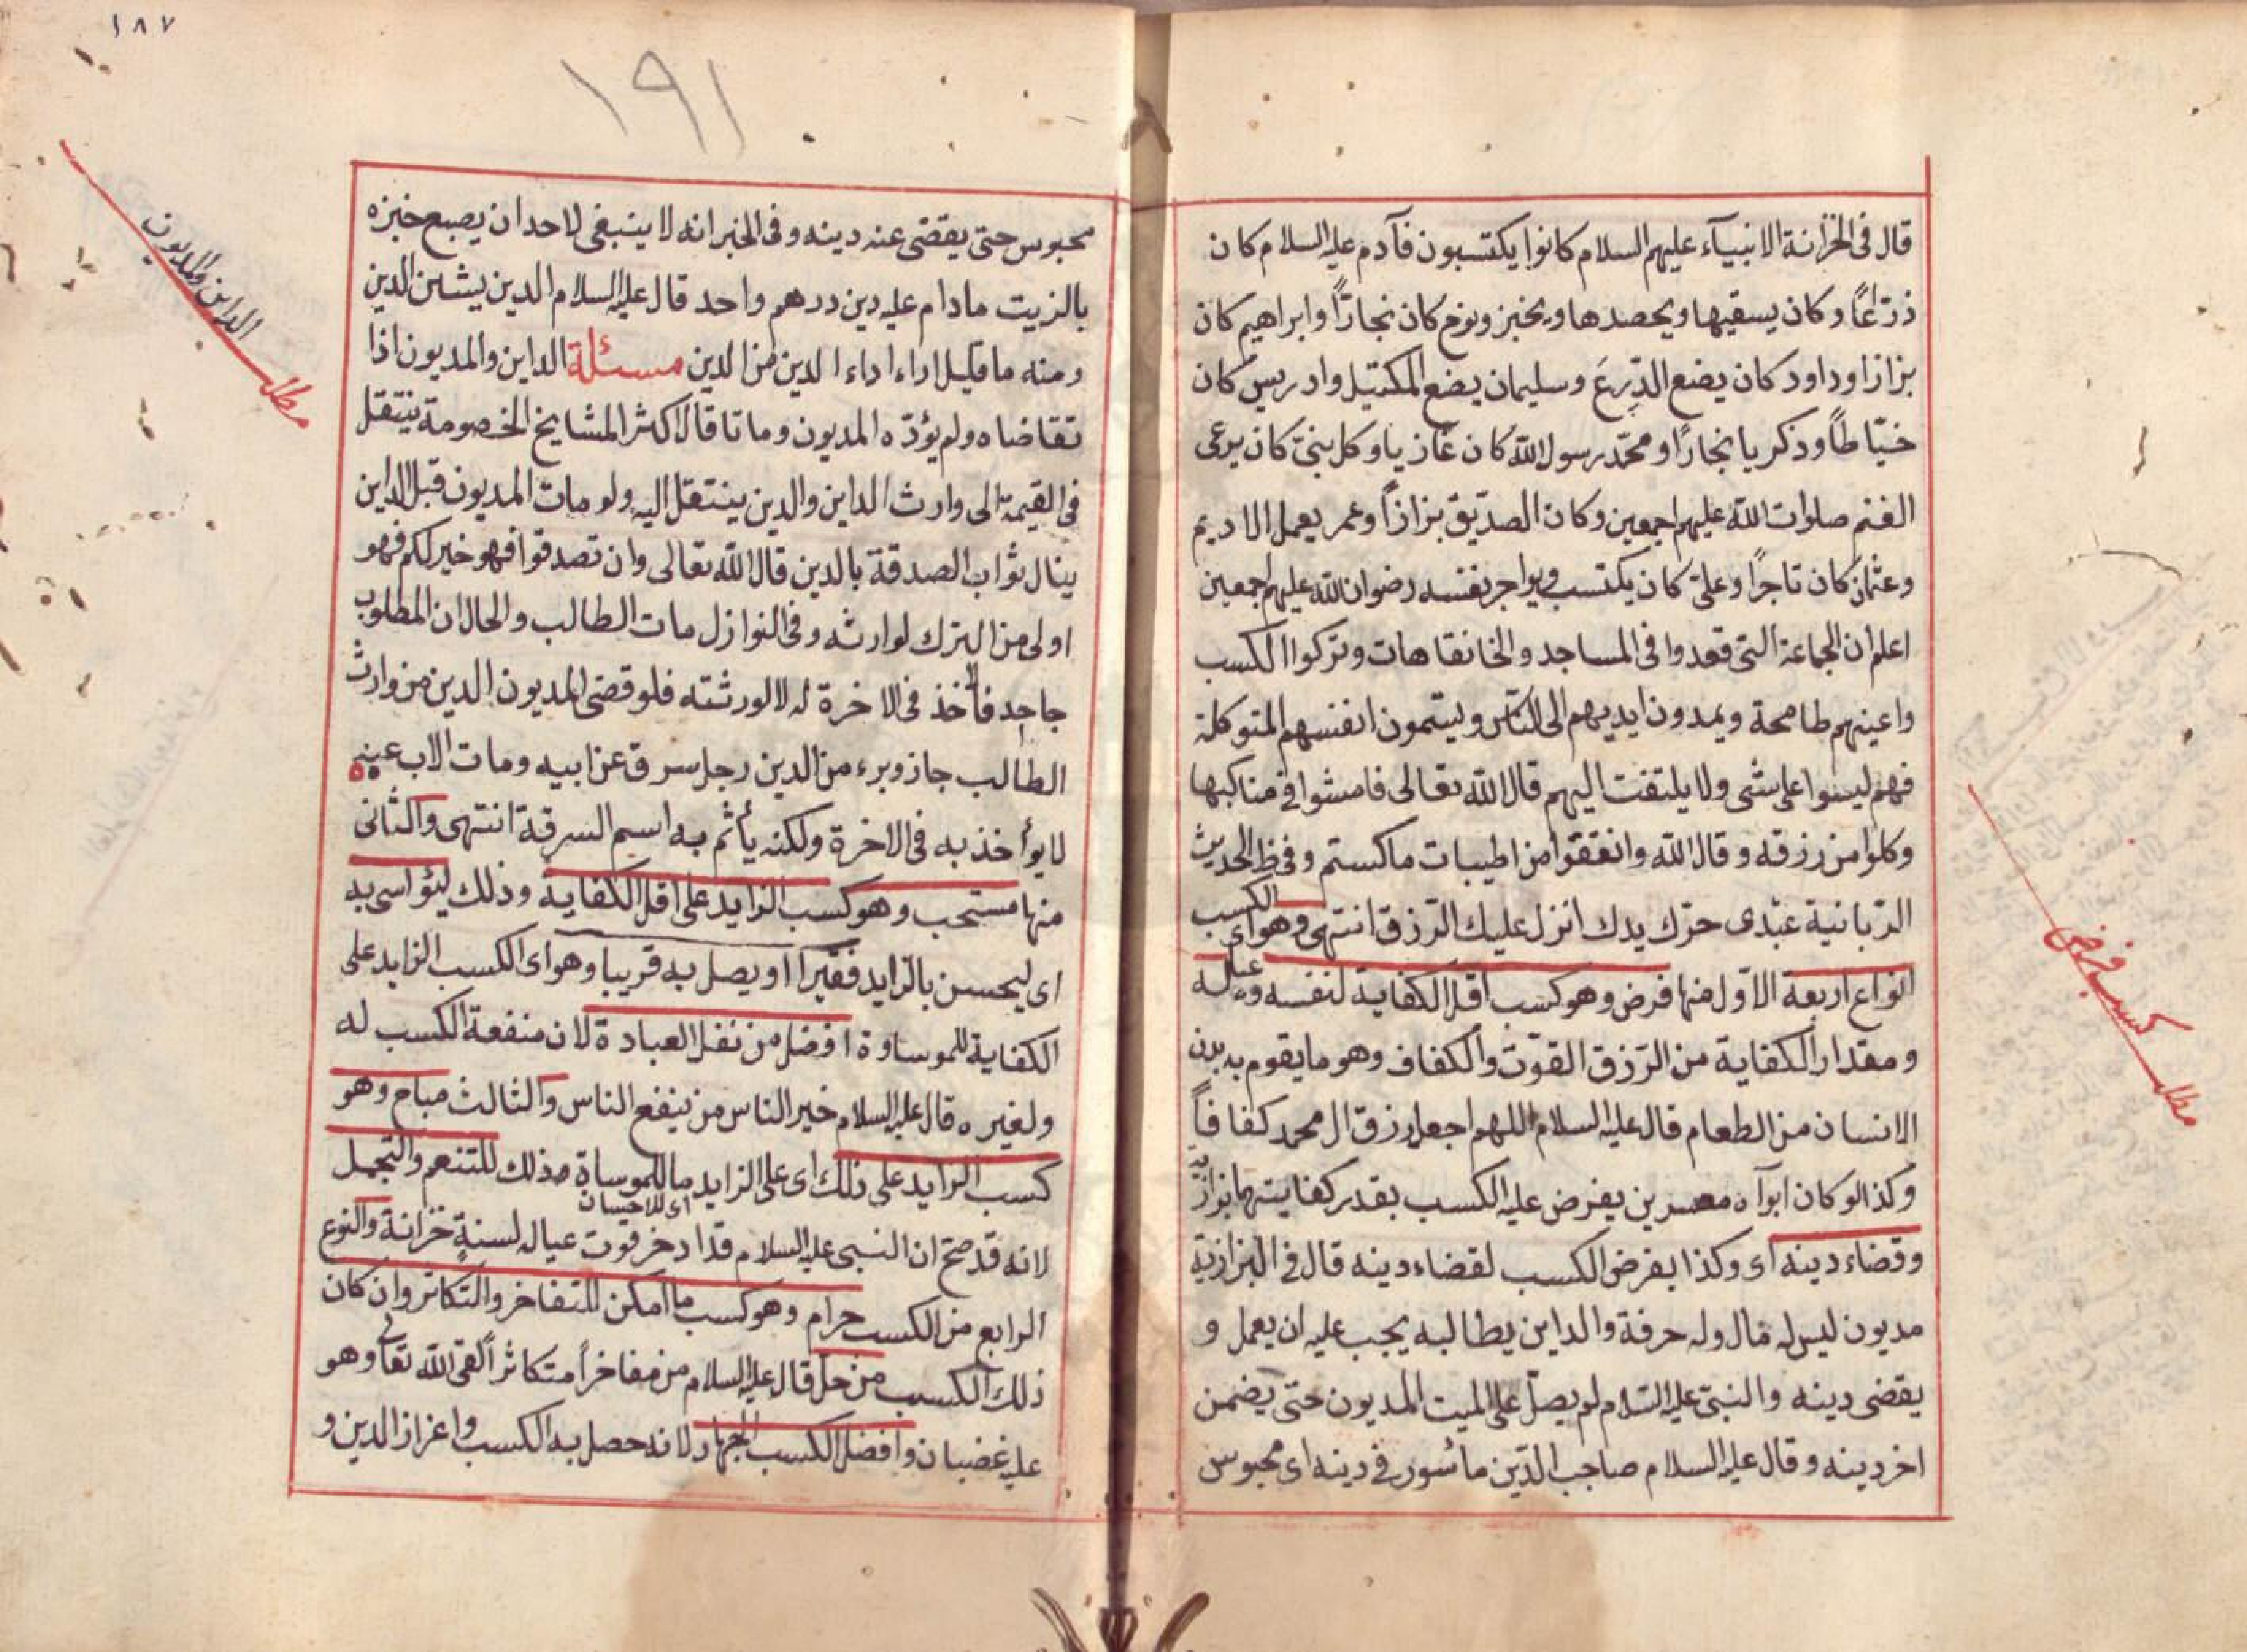 قال فى الخزانة الانبيآء عليهم السلام كانوا يكتسبون فآدم عليه السلام كان
ذرّاعًا وكان يسقيها ويحصدها ويخبز ونوح كان نجارًا وابراهيم كان
بزازا وداود كان يضع الدّرع وسليمان يضع المكتيل وادريس كان
خيّاطًا وذكريا نجارًا ومحمّد رسول الله كان غازيا وكل نبىّ كان يرعى
الغنم صلوات الله عليهم اجمعين وكان الصدّيق بزازًا وعمر يعمل الاديم
وعثمان كان تاجرًا وعلىّ كان يكتسب ويواجر نفسه رضوان الله عليهم اجمعين
اعلم ان الجماعة التى قعدوا فى المساجد والخانقاهات وتركوا الكسب
واعينهم طامحة ويمدون ايديهم الى الناس ويسمّون انفسهم المتوكلة
فهم ليسوا على شى ولا يلتفت اليهم قال الله تعالى فامشوا فى مناكبها
وكلوا من رزقه وقال الله وانفقوا من اطيبات ماكستم وفى الحديث
الرّبانية عبدى حرّك يدك انزل عليك الرّزق انتهى وهو اى الكسب
انواع اربعة الاوّل منها فرض وهو كسب اقل الكفاية لنفسه وعياله
ومقدار الكفاية من الرّزق القوّت والكفاف وهو ما يقوم به بدن
الانسان من الطعام قال عليه السلام اللهم اجعل رزق ال محمد كفافًا
وكذا لو كان ابوآه معسرين يفرض عليه الكسب بقدر كفايتهما بزازيه
وقضاء دينه اى وكذا يفرض الكسب لقضاء دينه قال فى البزازية
مديون ليس له مال وله حرفة والداين يطالبه يجب عليه ان يعمل و
يقضى دينه والنبىّ عليه السّلام لم يصلّ على الميت المديون حتى يضمن
اخر دينه وقال عليه السلام صاحب الدّين مأسور فى دينه اى محبوس
مطلب كسب فرض
١٨٧
١٩١
محبوس حتى يقضى عنه دينه وفى الخبر انه لا ينبغى لاحد ان يصبع خبزه
بالزيت مادام عليه دين درهم واحد قال عليه السلام الدين يشين الدين
ومنه ما قيل اداء اداء الدين من الدين مسئلة الداين والمديون اذا
تقاضاه ولم يؤدّه المديون وماتا قال اكثر المشايخ الخصومة ينتقل
فى القيمة الى وارث الداين والدين ينتقل اليه ولو مات المديون قبل الداين
ينال ثواب الصدقة بالدين قال الله تعالى وان تصدقوا فهو خير لكم فهو
اولى من الترك لوارثه وفى النوازل مات الطالب والحال ان المطلوب
جاحد فالأخذ فى الاخرة له لا لورثته فلو قضى المديون الدين من وارث
الطالب جاز وبرء من الدين رجل سرق عن ابيه ومات الاب عينه
لا يوأخذ به فى الاخرة ولكنه يأثم به اسم السرقة انتهى والثانى
منها مستحب وهو كسب الزايد على اقل الكفاية وذلك ليؤاسى به
اى ليحسن بالزايد فقيرا او يصل به قريبا وهو اى الكسب الزايد على
الكفاية للموساوة افضل من نفل العبادة لان منفعة الكسب له
ولغيره قال عليه السلام خير الناس من ينفع الناس والثالث مباح وهو
كسب الزايد على ذلك اى على الزايد ما للموساة مذلك للتنعم والتجمل
اى للاحيسان
لانه قد صحّ ان النبى عليه السلام قد ادخر قوت عياله لسنةٍ خزانة والنوع
الرابع من الكسب حرام وهو كسب ما امكن للتفاخر والتكاثر وان كان
ذلك الكسب من حلّ قال عليه السلام من مفاخرًا متكاثرًا لقى الله تعالى وهو
عليه غضبان وافضل الكسب الجهاد لانه حصل به الكسب واعزاز الدين و
مطلب الداين والمديون